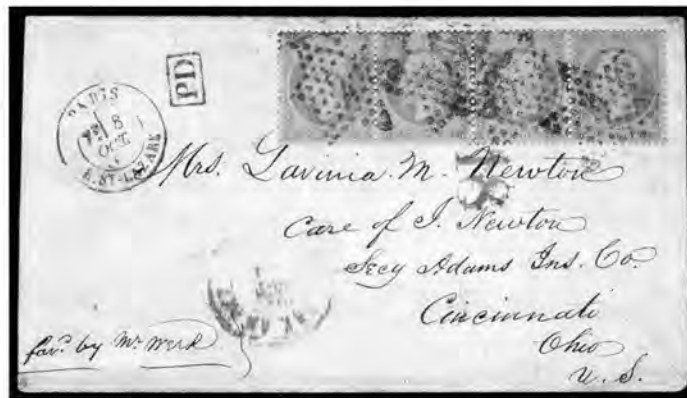 PARIS
8
OCT
R. ST-LAZARE
PD
Mrs. Lavinia M. Newton
Care of I. Newton
Secy Adams Ins. Co.
Cincinnati
Ohio
U. S.
fav.d by Mr Werk